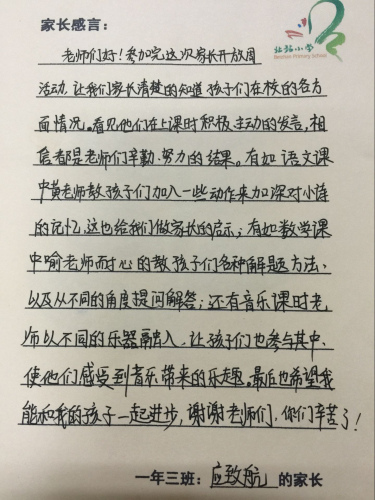 家长感言：
北站小学
Beizhan Primary School
老师们好！参加完这次家长开放周
活动，让我们家长清楚的知道孩子们在校的各方
面情况。看见他们在上课时积极、主动的发言，相
信都是老师们辛勤、努力的结果。有如语文课
中黄老师教孩子们加入一些动作来加深对小诗
的记忆，这也给我们做家长的启示；有如数学课
中喻老师耐心的教孩子们各种解题方法、
以及从不同的角度提问解答；还有音乐课时老
师以不同的乐器融入，让孩子们也参与其中，
使他们感受到音乐带来的乐趣。最后也希望我
能和我的孩子一起进步，谢谢老师们，你们辛苦了！
一年三班：应致航 的家长